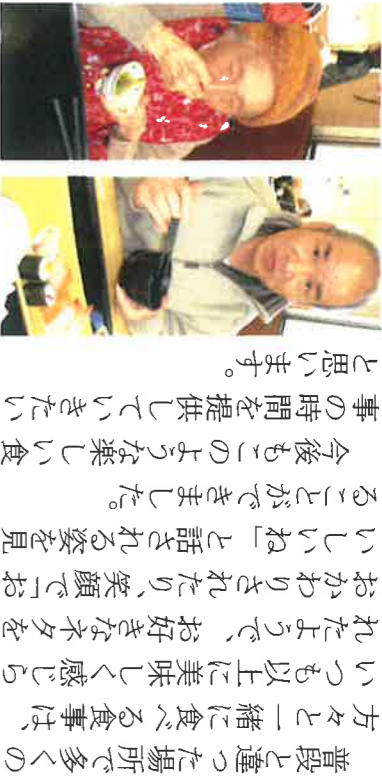 普段と違った場所で多くの
方々と一緒に食べる食事は、
いつも以上に美味しく感じら
れたようで、お好きなネタを
おかわりされたり、笑顔で「お
いしいね」と話される姿を見
ることができました。
今後もこのような楽しい食
事の時間を提供していきたい
と思います。